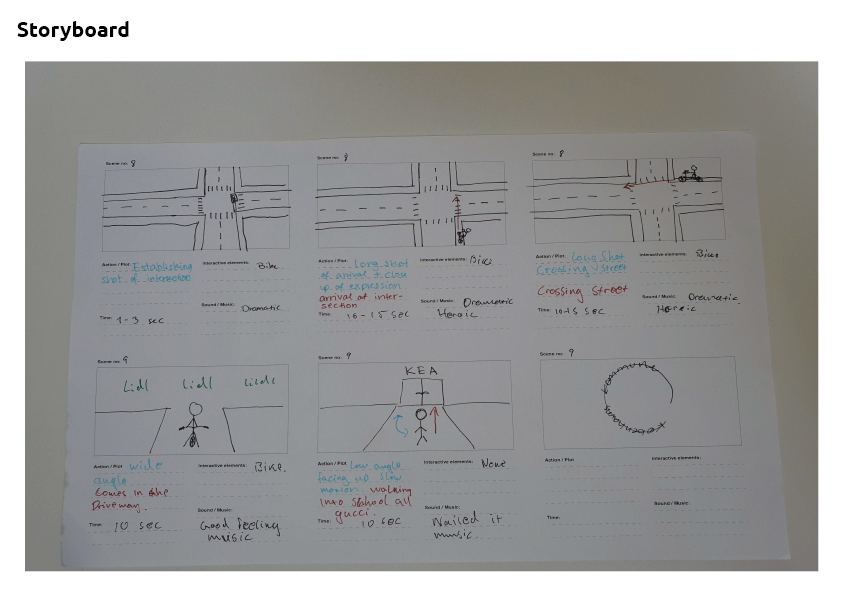 Storyboard
Scene no: 8
Action / Plot: Establishing
shot of intersection
Interactive elements:
Bike
Sound / Music:
Dramatic
Time: 1-3 sec
Scene no: 8
Action / Plot: Long shot
of arrival + close
up of expression
arrival of inter-
section
Interactive elements: Bike
Sound / Music: Dramatic
Heroic
Time: 10-15 sec
Scene no: 8
Action / Plot: Long Shot
Crossing street
Crossing Street
Interactive elements: Bike
Sound / Music: Dramatic
Heroic
Time: 10-15 sec
Scene no: 9
Lidl Lidl
Action / Plot wide
angle
Comes in the
Driveway.
Interactive elements: Bike.
Sound / Music:
Good feeling
music
Time: 10 sec
Scene no: 9
KEA
Action / Plot Low angle
facing up slow
motion. walking
into School all
gucci.
Interactive elements: None
Sound / Music:
Nailed it
music.
Time: 10 sec
Scene no: 9
Action / Plot
Interactive elements:
Sound / Music:
Time: